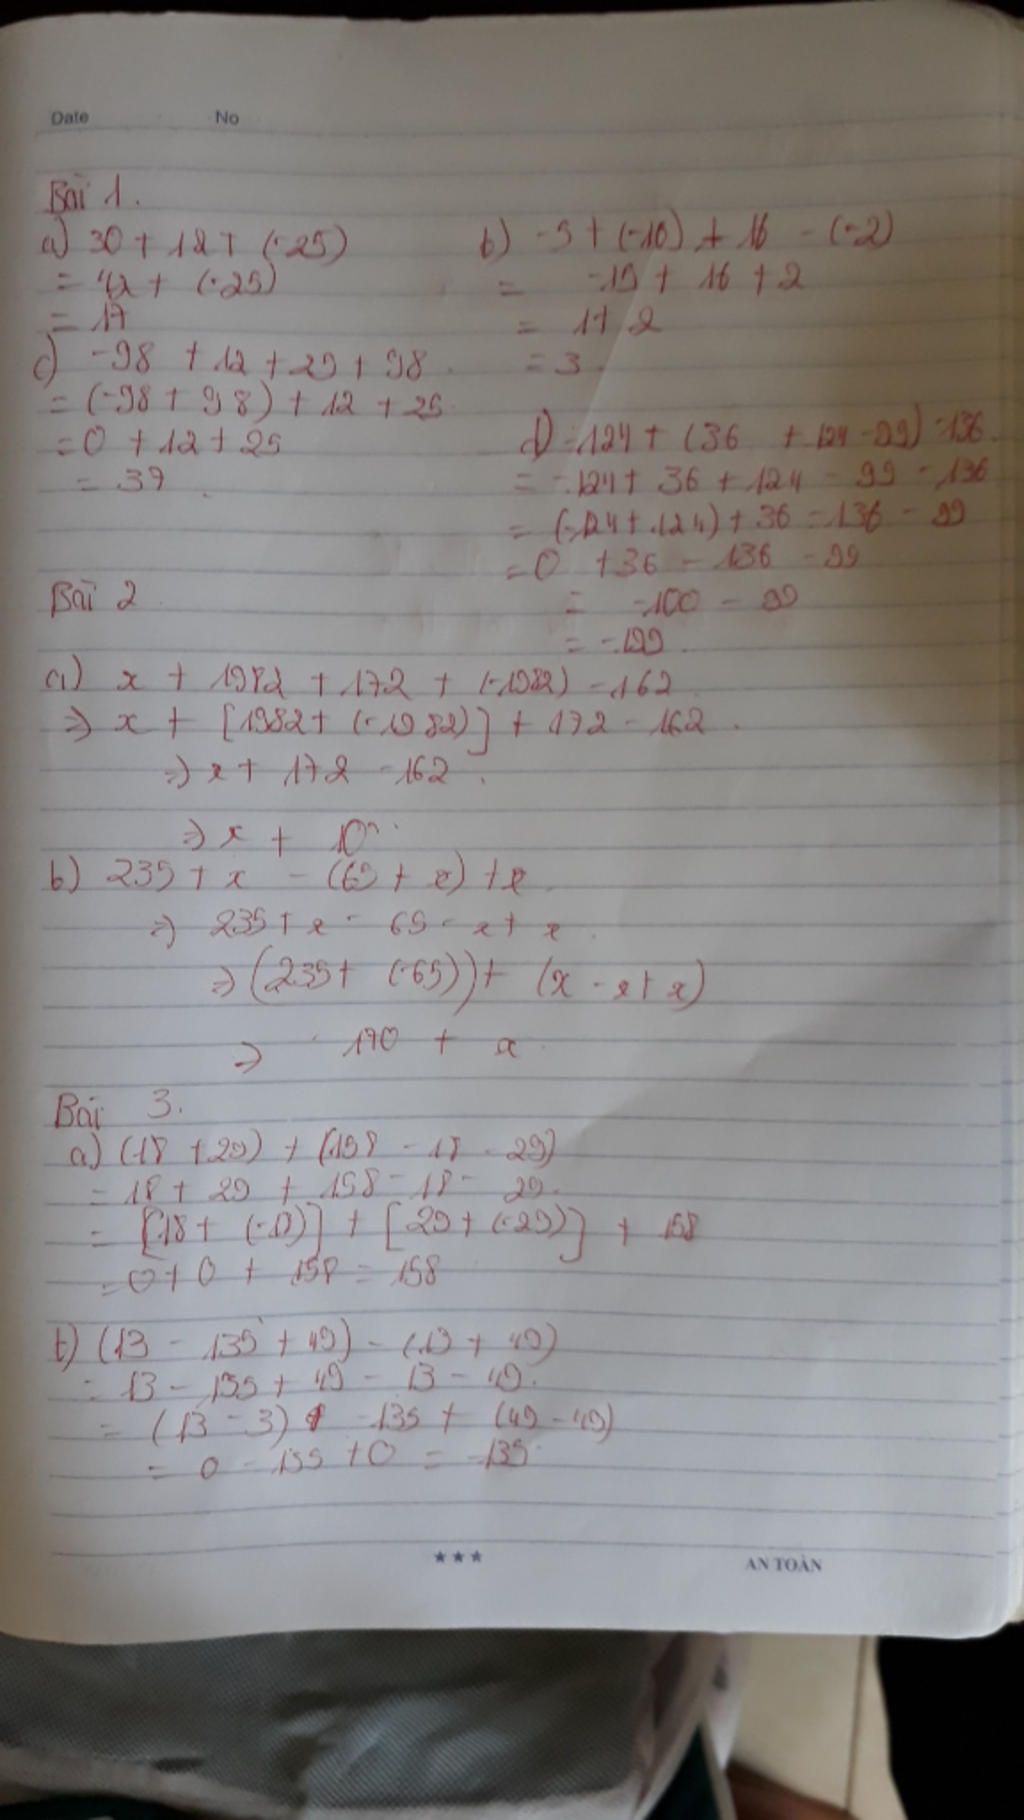 Date No
Bài 1.
a) 30 + 12 + (-25)
= 42 + (-25)
= 17
b) -5 + (-10) + 16 - (-2)
= -15 + 16 + 2
= 1 + 2
= 3
c) -98 + 12 + 29 + 98
= (-98 + 98) + 12 + 25
= 0 + 12 + 25
= 39
d) -124 + (36 + 124 - 99) - 136
= -124 + 36 + 124 - 99 - 136
= (-124 + 124) + 36 - 136 - 99
= 0 + 36 - 136 - 99
= -100 - 99
= -199
Bài 2
a) x + 1982 + 172 + (-1982) - 162
⇒ x + [1982 + (-1982)] + 172 - 162
⇒ x + 172 - 162
⇒ x + 10
b) 235 + x - (65 + x) + x
⇒ 235 + x - 65 - x + x
⇒ (235 + (-65)) + (x - x + x)
⇒ 170 + x
Bài 3.
a) (18 + 29) + (158 - 18 - 29)
= 18 + 29 + 158 - 18 - 29
= [18 + (-18)] + [29 + (-29)] + 158
= 0 + 0 + 158 = 158
b) (13 - 135 + 49) - (13 + 49)
= 13 - 135 + 49 - 13 - 49
= (13 - 3) - 135 + (49 - 49)
= 0 - 135 + 0 = -135
*** AN TOÀN